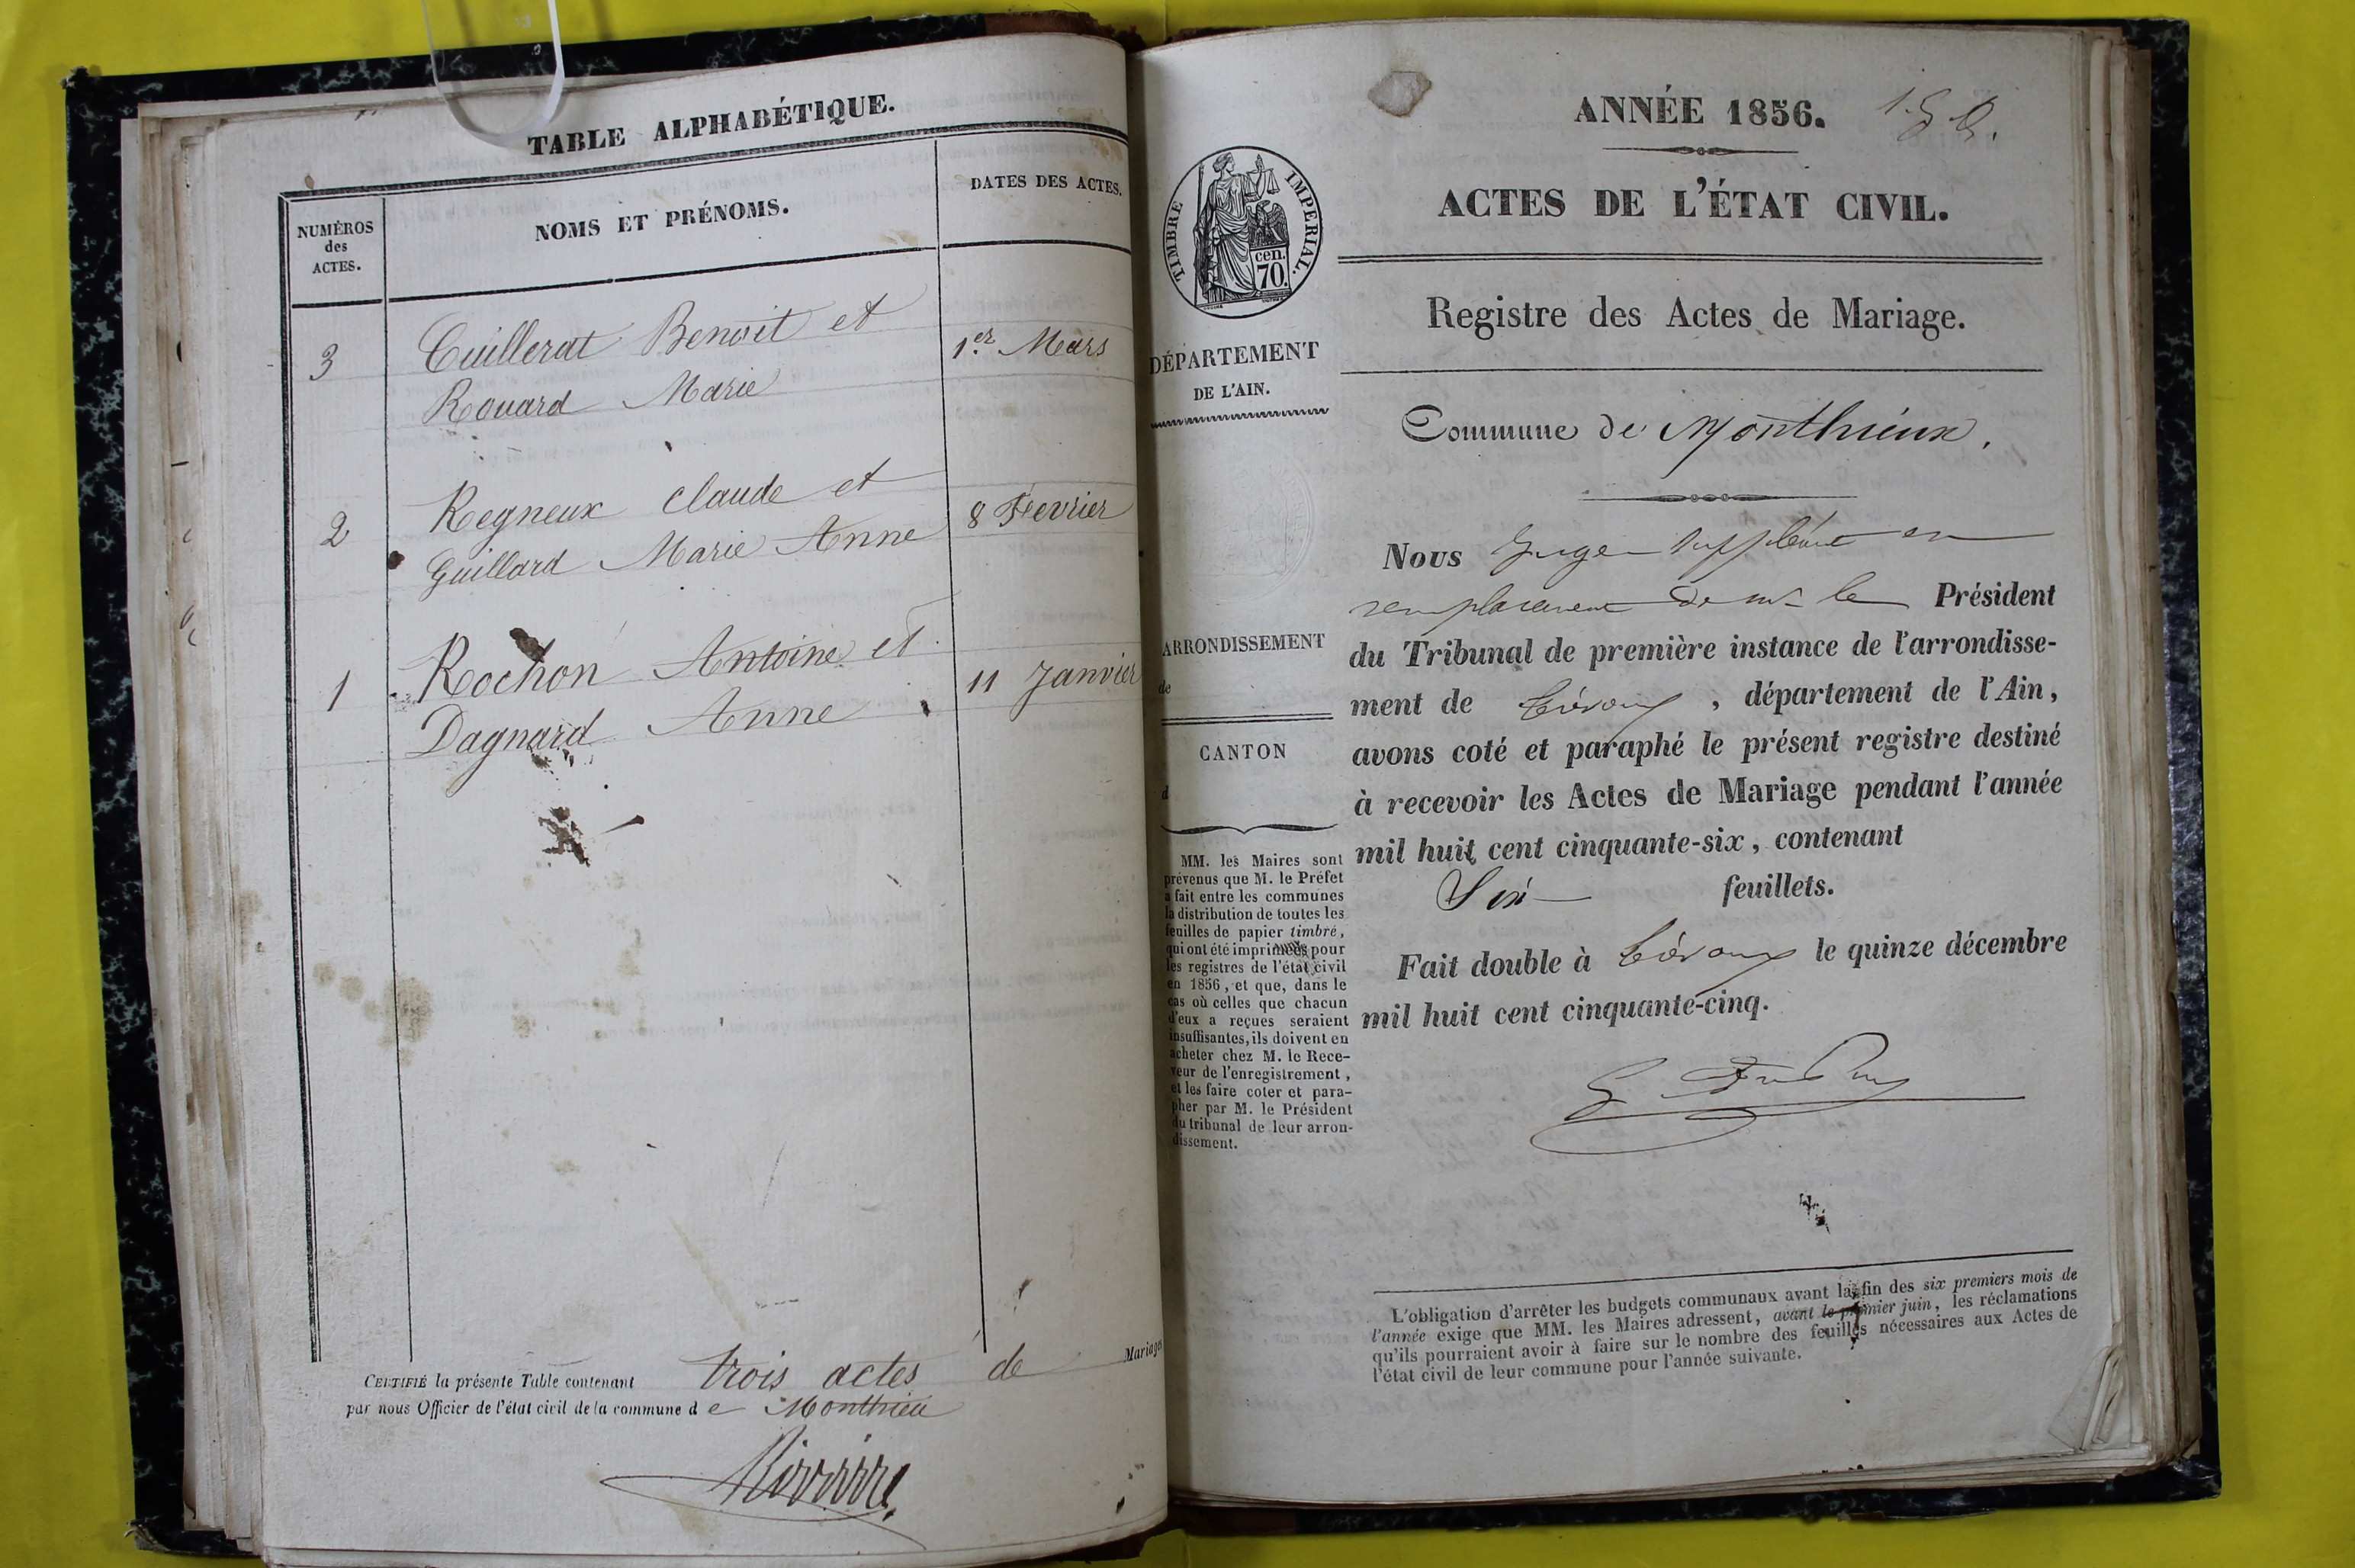 TABLE ALPHABÉTIQUE.
NUMÉROS
des
ACTES.
NOMS ET PRÉNOMS.
DATES DES ACTES.
3
Cuillerat Benoit et
1er Mars
Rouard Marie
2
Regneux Claude et
8 Fevrier
Guillard Marie Anne
1
Rochon Antoine et
11 Janvier
Dagnard Anne
CERTIFIÉ la présente Table contenant trois actes de Mariages
par nous Officier de l'état civil de la commune d e Monthieu
ANNÉE 1856.
ACTES DE L'ÉTAT CIVIL.
TIMBRE IMPERIAL.
cen.
70.
Registre des Actes de Mariage.
DÉPARTEMENT
DE L'AIN.
Commune de Monthieux.
Nous Juge suppléant en
remplacement de mr le Président
du Tribunal de première instance de l'arrondisse-
ment de Trévoux, département de l'Ain,
avons coté et paraphé le présent registre destiné
à recevoir les Actes de Mariage pendant l'année
mil huit cent cinquante-six, contenant
Six feuillets.
Fait double à Trévoux le quinze décembre
mil huit cent cinquante-cinq.
ARRONDISSEMENT
de
CANTON
d
MM. les Maires sont
prévenus que M. le Préfet
a fait entre les communes
la distribution de toutes les
feuilles de papier timbré,
qui ont été imprimées pour
les registres de l'état civil
en 1856, et que, dans le
cas où celles que chacun
d'eux a reçues seraient
insuffisantes, ils doivent en
acheter chez M. le Rece-
veur de l'enregistrement,
et les faire coter et para-
pher par M. le Président
du tribunal de leur arron-
dissement.
L'obligation d'arrêter les budgets communaux avant la fin des six premiers mois de
l'année exige que MM. les Maires adressent, avant le premier juin, les réclamations
qu'ils pourraient avoir à faire sur le nombre des feuilles nécessaires aux Actes de
l'état civil de leur commune pour l'année suivante.